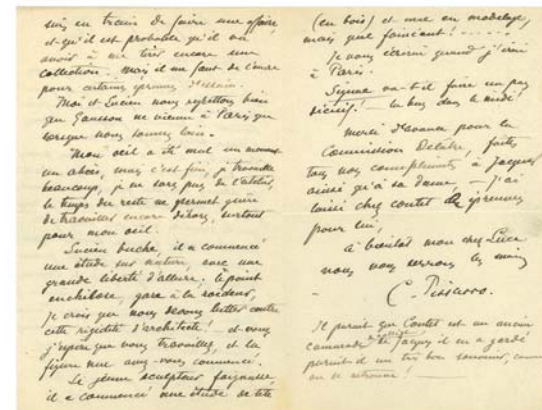 suis en train de faire une affaire,
et qu'il est probable qu'il va
avoir à me tirer encore une
collection. Mais il me faut de l'encre
pour certaines épreuves d'essai.
Moi et Lucien nous regrettons bien
que Gausson ne vienne à Paris que
lorsque nous sommes loin.
Mon œil a été mal un moment
un abcès, mais c'est fini, je travaille
beaucoup, je ne sors pas de l'atelier,
le temps du reste ne permet guère
de travailler encore dehors, surtout
pour mon œil.
Lucien bûche, il a commencé
une étude sur nature, avec une
grande liberté d'allure; le point
ankylose, gare à la roideur,
je crois que nous devons lutter contre
cette rigidité d'architecte! - et vous
j'espère que vous travaillez, et la
figure nue avez-vous commencé.
Le jeune sculpteur
il a commencé une étude de tête
(en bois) et une en modelage,
mais quel fainéant! . . . . .
Je vous écrirai quand j'irai
à Paris.
Signac va-t-il faire un pas
décisif! - là bas dans le midi!
Merci d'avance pour la
Commission Delatre, faites
tous nos compliments à Jacques
ainsi qu'à sa dame, - J'ai
laissé chez Contet épreuves
pour lui,
à bientôt mon cher Luce
nous vous serrons les mains
- C. Pissarro.
Il paraît que Contet est un ancien
camarade de Jacques il en a gardé
paraît il un très bon souvenir, comme
on se retrouve! -